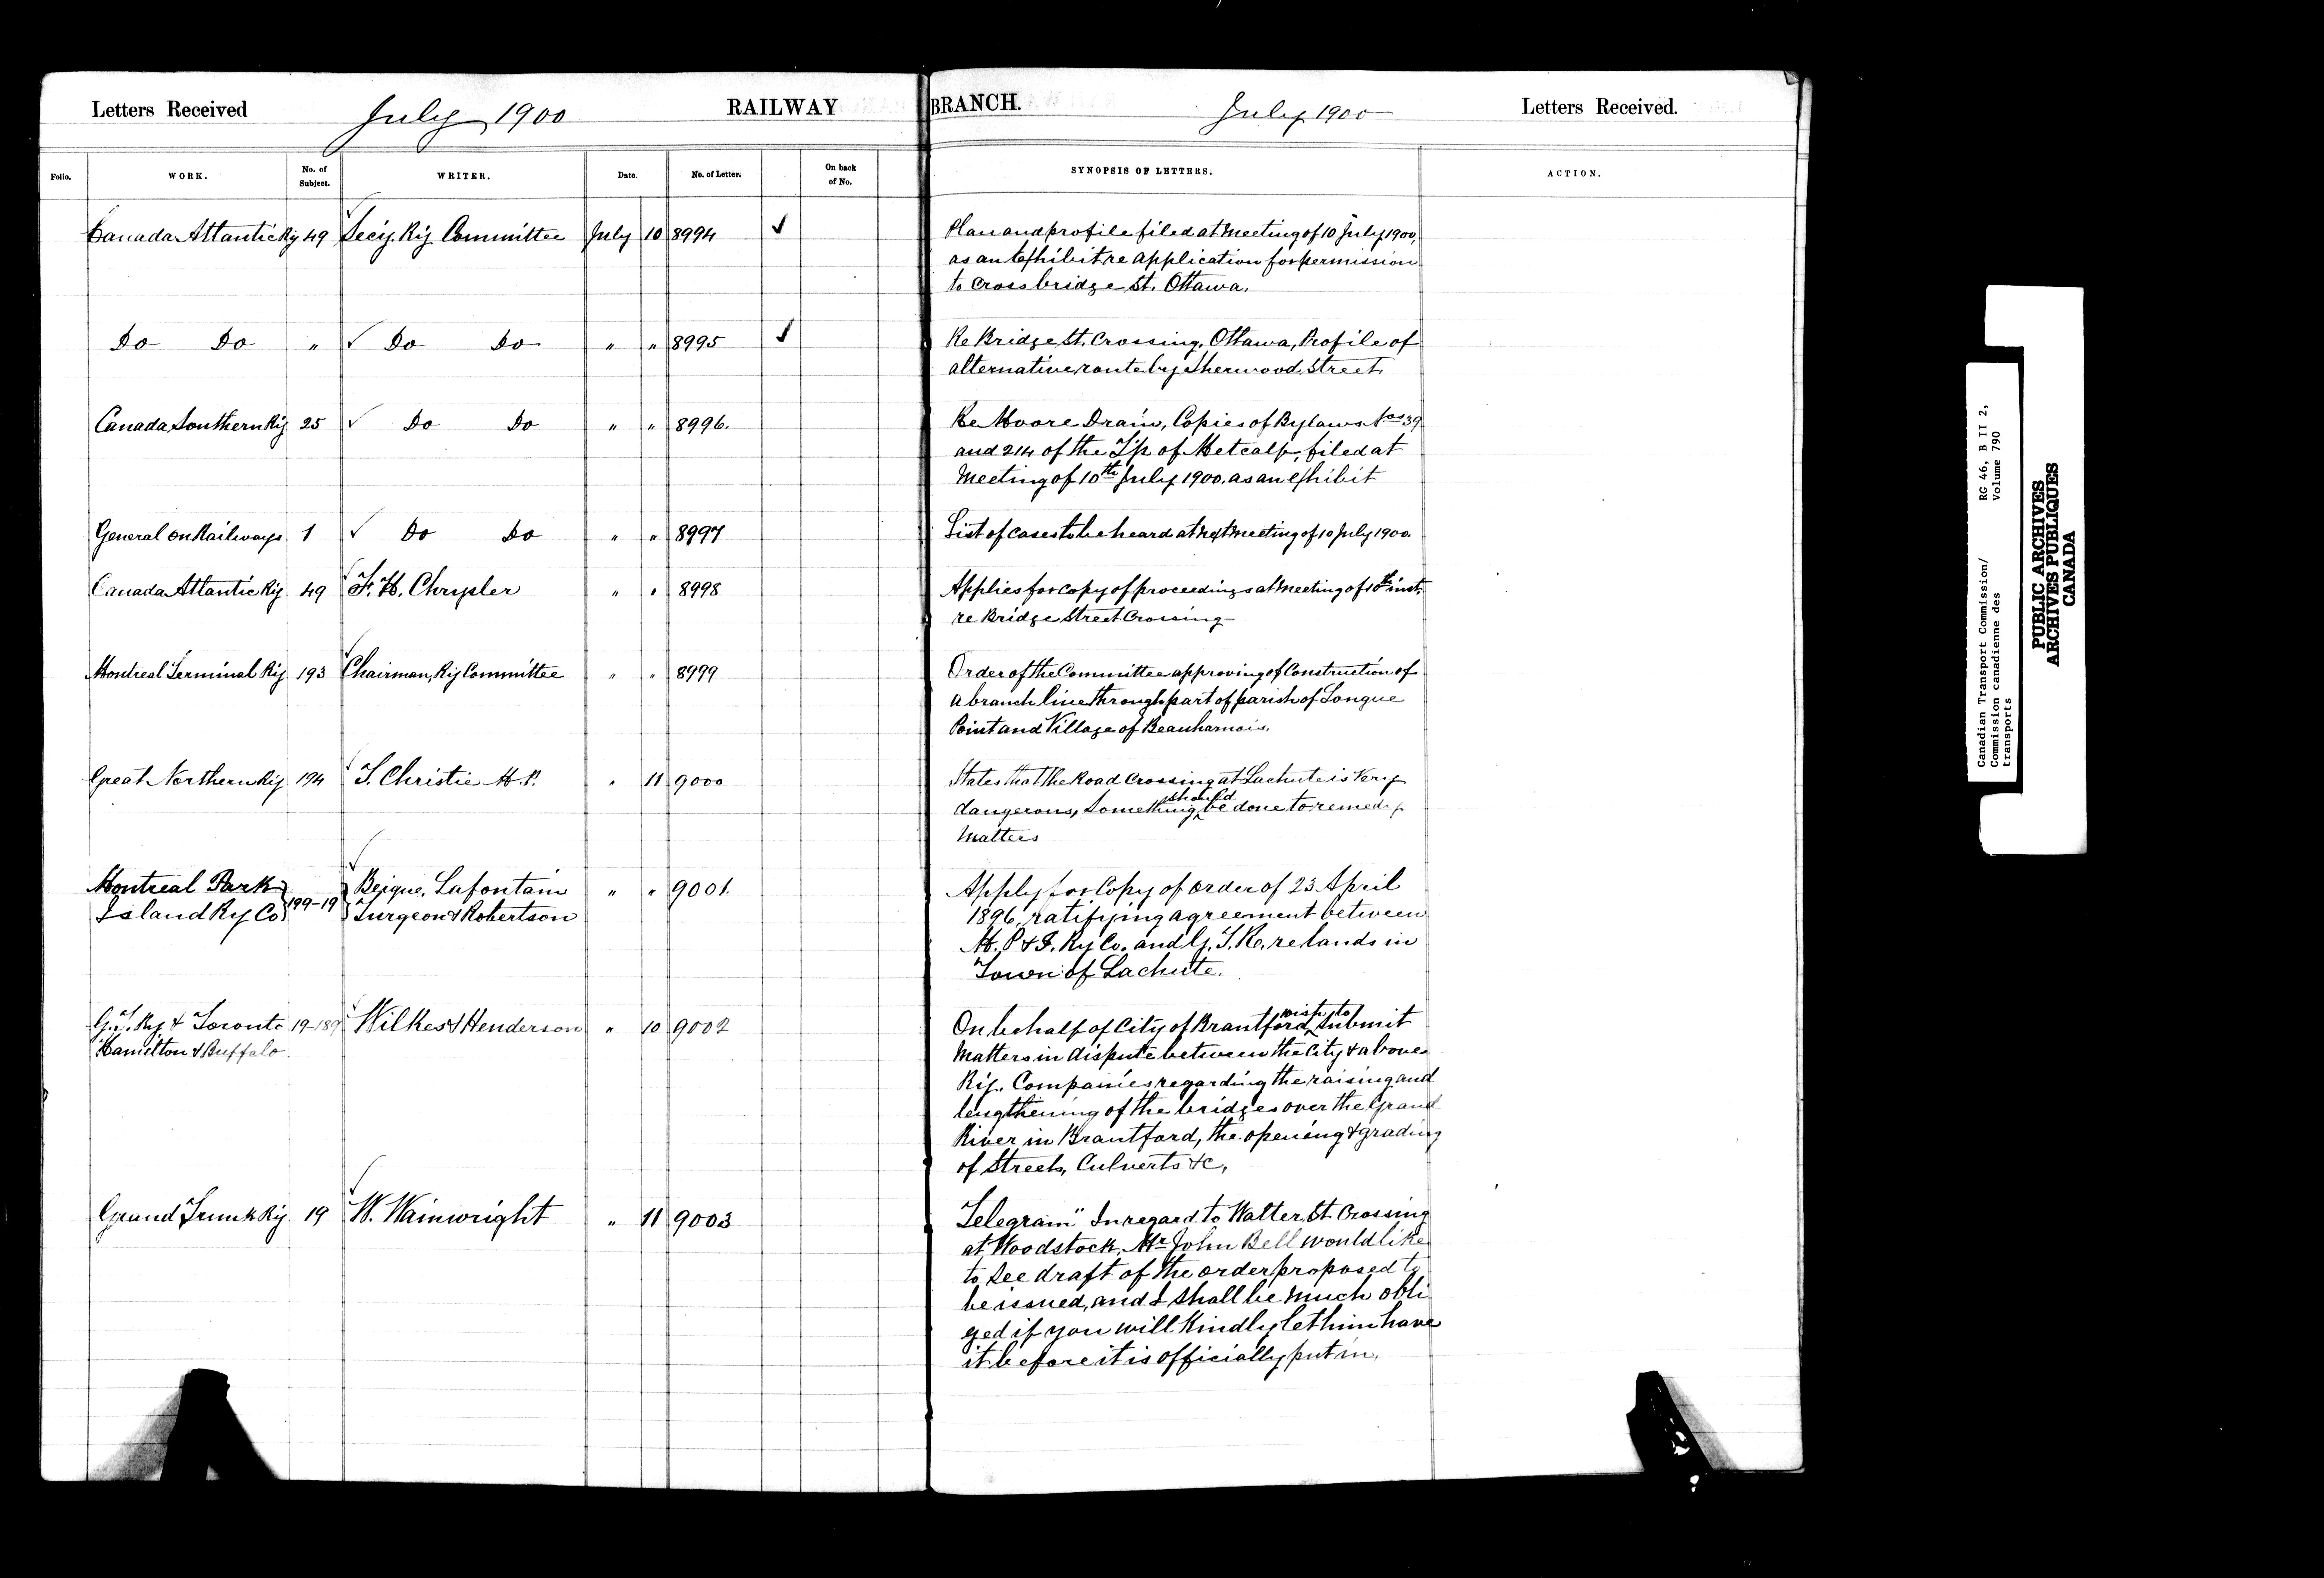 Letters Received July 1900 RAILWAY BRANCH. July 1900 Letters Received.
Folio. WORK. No. of Subject. WRITER. Date. No. of Letter. On back of No. SYNOPSIS OF LETTERS. ACTION.
Canada Atlantic Ry 49 ✓ Secy. Ry. Committee July 10 8994 ✓ Plan and profile filed at Meeting of 10 July 1900,
as an Exhibit re application for permission
to cross bridge St. Ottawa.
Do Do " ✓ Do Do " " 8995 ✓ Re Bridge St. Crossing, Ottawa, Profile of
alternative route by Sherwood Street.
Canada Southern Ry. 25 ✓ Do Do " " 8996. Re Moore Drain, Copies of Bylaws Nos 39
and 214 of the Tp of Metcalf, filed at
Meeting of 10th July 1900. as an exhibit
General on Railways 1 ✓ Do Do " " 8997 List of cases to be heard at next Meeting of 10 July 1900.
Canada Atlantic Ry. 49 ✓ F. H. Chrysler " " 8998 Applies for copy of proceedings at Meeting of 10th inst.
re Bridge Street Crossing
Montreal Terminal Ry. 193 ✓ Chairman, Ry Committee " " 8999 Order of the Committee approving of Construction of
a branch line through part of parish of Longue
Point and Village of Beauharnois.
Great Northern Ry. 194 ✓ T. Christie M.P. " 11 9000 States that the Road Crossing at Lachute is Very
dangerous, Something should be done to remedy
Matters
Montreal Park } 199-19 ✓ } Beique, Lafontain " " 9001. Apply for Copy of order of 23 April
Island Ry Co } Turgeon & Robertson 1896, ratifying agreement between
M. P & I. Ry Co. and G. T. R. re lands in
Town of Lachute.
G. T. Ry & Toronto 19-189 ✓ Wilkes & Henderson " 10 9002 On behalf of City of Brantford wish to Submit
Hamilton & Buffalo Matters in dispute between the City & above
Ry. Companies regarding the raising and
lengthening of the bridges over the Grand
River in Brantford, the opening & grading
of Streets, Culverts &c,
Grand Trunk Ry. 19 ✓ W. Wainwright " 11 9003 Telegram" In regard to Walter St. Crossing
at Woodstock, Mr John Bell would like
to See draft of the order proposed to
be issued, and I shall be much obli
ged if you will kindly let him have
it before it is officially put in.
Canadian Transport Commission/ RG 46, B II 2,
Commission canadienne des Volume 790
transports
PUBLIC ARCHIVES
ARCHIVES PUBLIQUES
CANADA